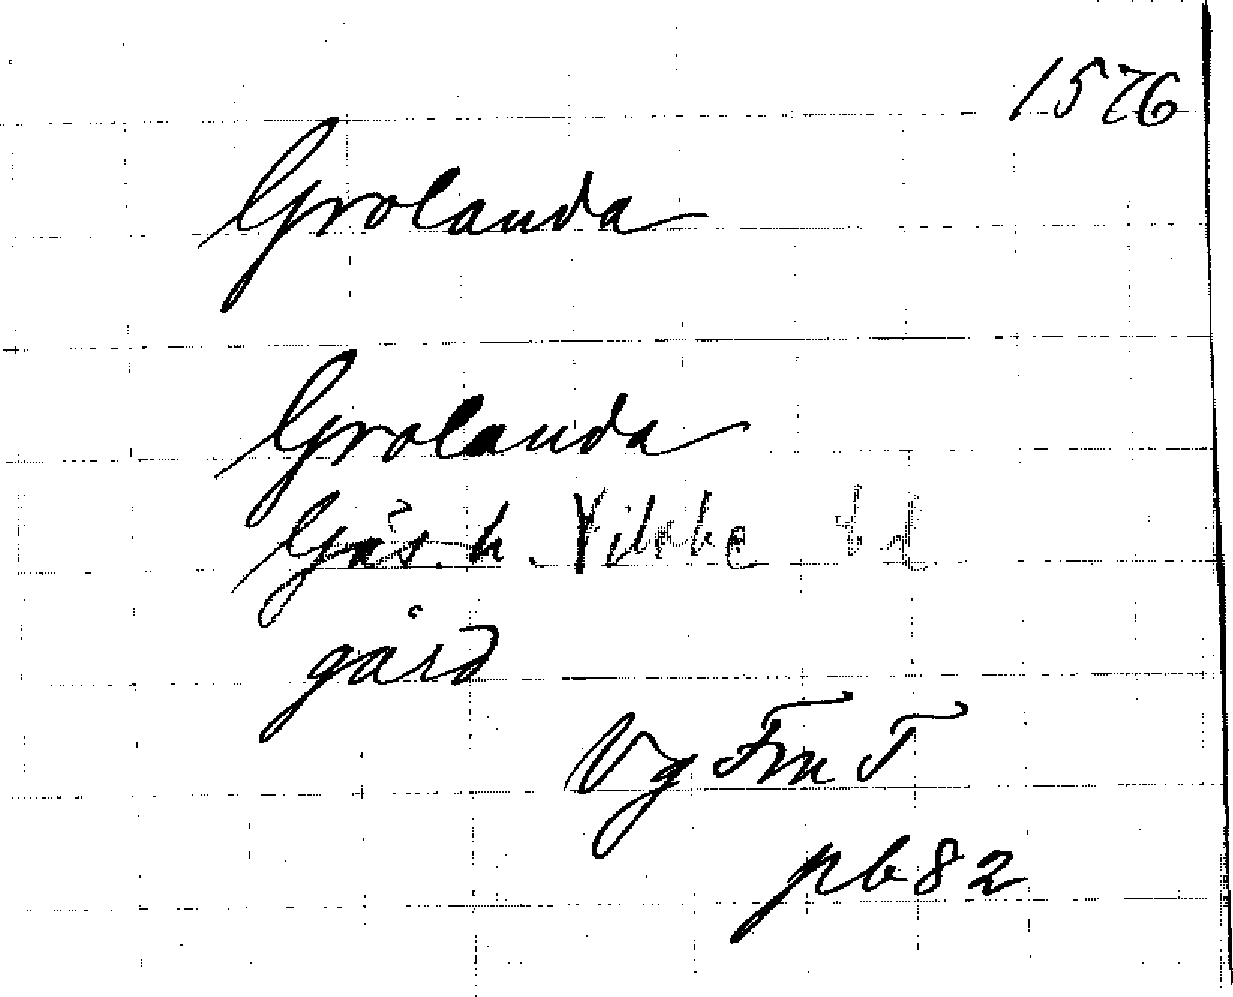 1576
Grolanda
Grolanda
Gäs. h. Vilske hd
gård
Vg Fm T
pb 82